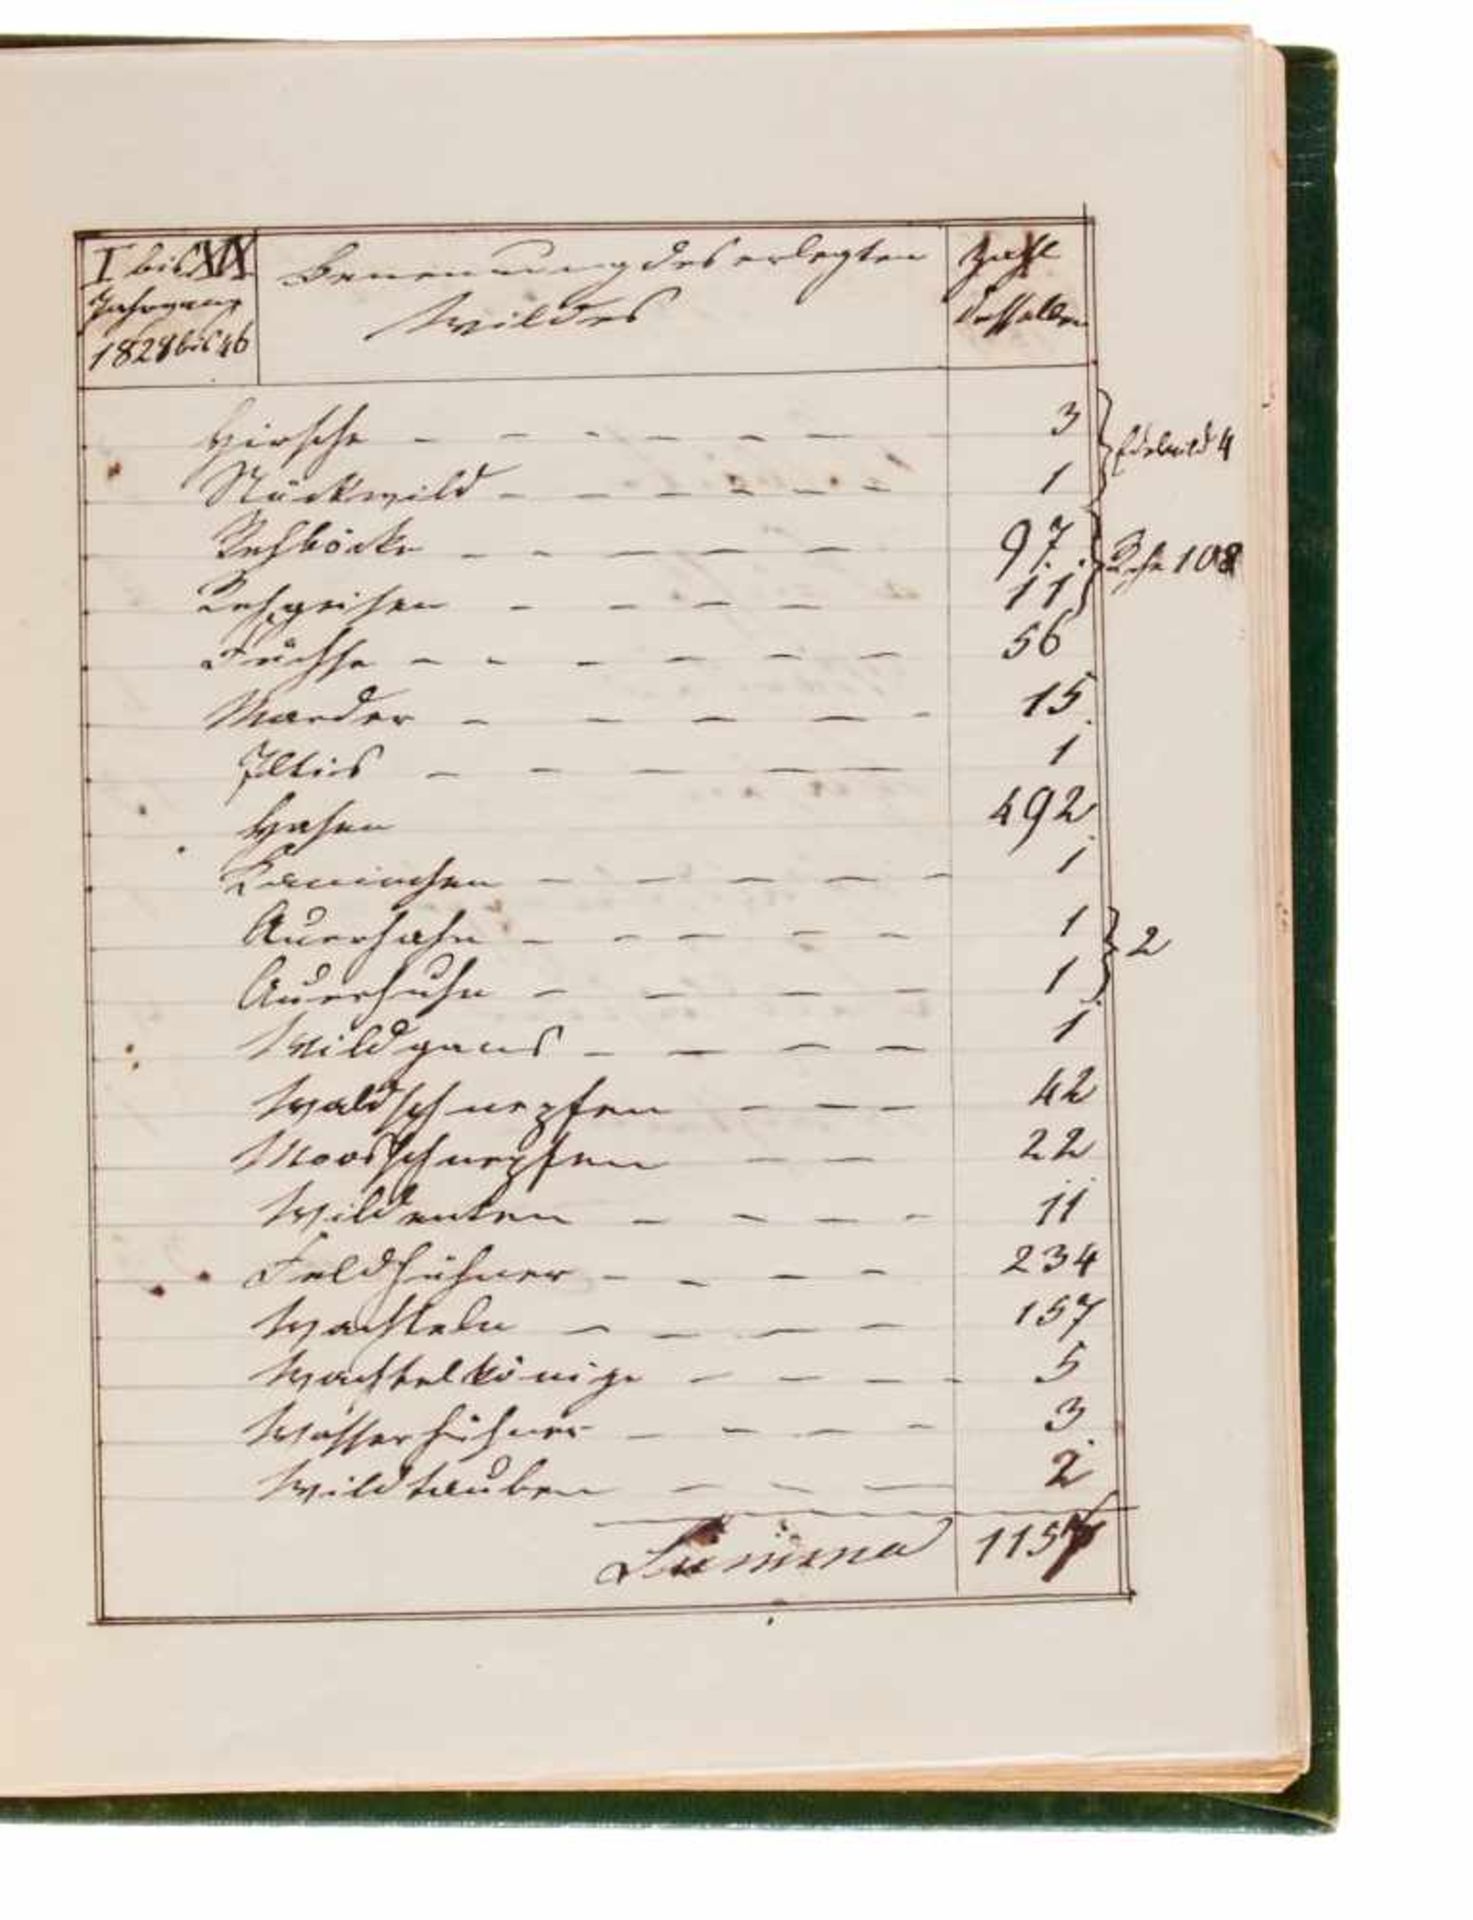 I bis XIX
Jahrgang
1828 bis 46
Benennung des erlegten
Wildes
Zahl
desselben
Hirsche - - - - - - 3
Stückwild - - - - - - 1
Edelwild 4
Rehböcke - - - - - - 97
Rehgeisen - - - - - 11
Rehe 108
Füchse - - - - - - 56
Marder - - - - - 15
Iltis - - - - - 1
Hasen 492
Kaninchen - - - - - 1
Auerhahn - - - - - 1
Auerhuhn - - - - 1
2
Wildgans - - - - 1
Waldschnepfen - - - 42
Moosschnepfen - - 22
Wildenten - - - - 11
Feldhühner - - - - 234
Wachteln - - - - 157
Wachtelkönige - - - - 5
Wasserhühner - - - - 3
Wildtauben - - - 2
Summa